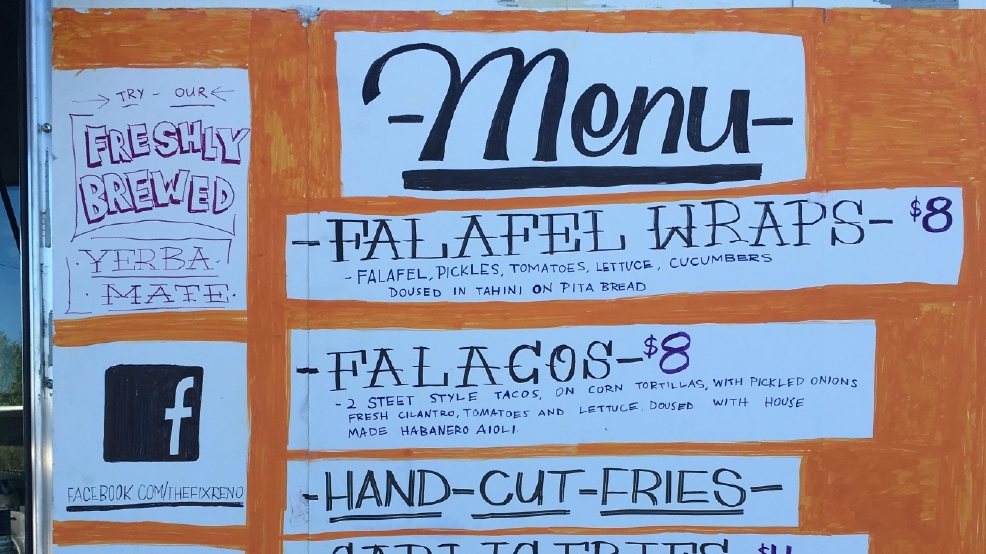 TRY - OUR
FRESHLY
BREWED
YERBA
MATE
f
FACEBOOK.COM/THEFIXRENO
-Menu-
-FALAFEL WRAPS- $8
-FALAFEL, PICKLES, TOMATOES, LETTUCE, CUCUMBERS
DOUSED IN TAHINI ON PITA BREAD
-FALACOS- $8
-2 STEET STYLE TACOS, ON CORN TORTILLAS, WITH PICKLED ONIONS
FRESH CILANTRO, TOMATOES AND LETTUCE. DOUSED WITH HOUSE
MADE HABANERO AIOLI.
-HAND-CUT-FRIES-
GARLIC FRIES $4